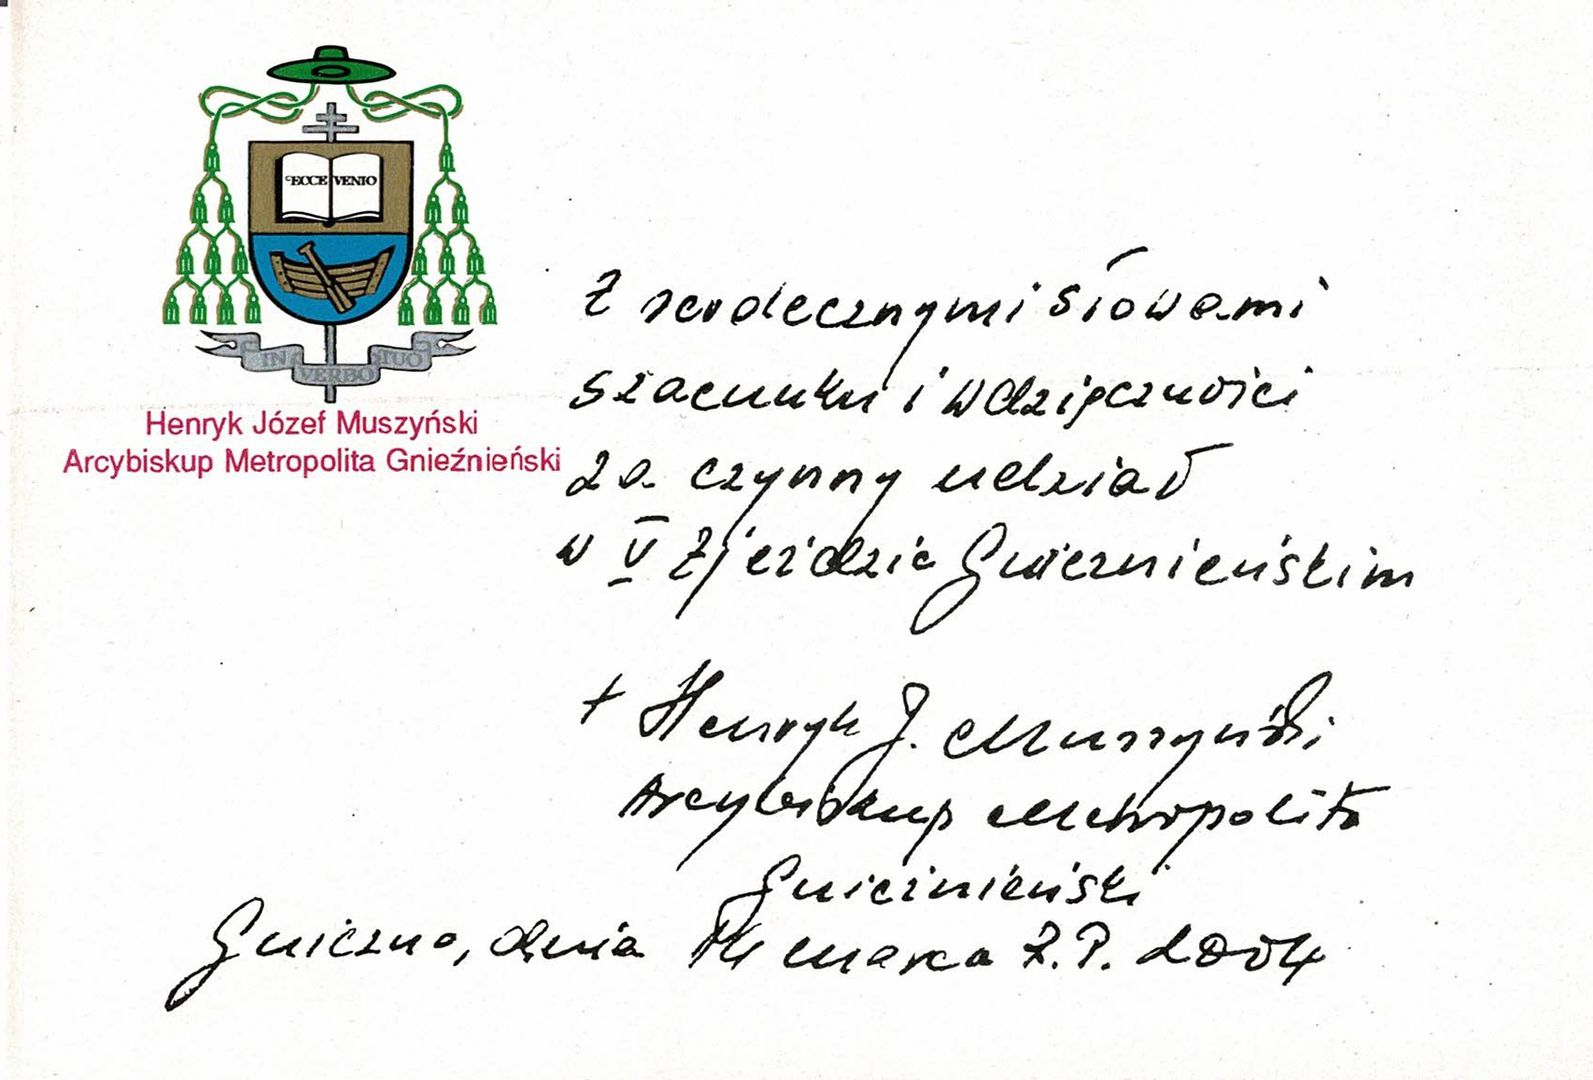 ECCE VENIO
IN VERBO TUO
Henryk Józef Muszyński
Arcybiskup Metropolita Gnieźnieński
Z serdecznymi słowami
szacunku i wdzięczności
za czynny udział
w V Zjeździe Gnieźnieńskim
+ Henryk J. Muszyński
Arcybiskup Metropolita
Gnieźnieński
Gniezno, dnia marca R.P. 2004